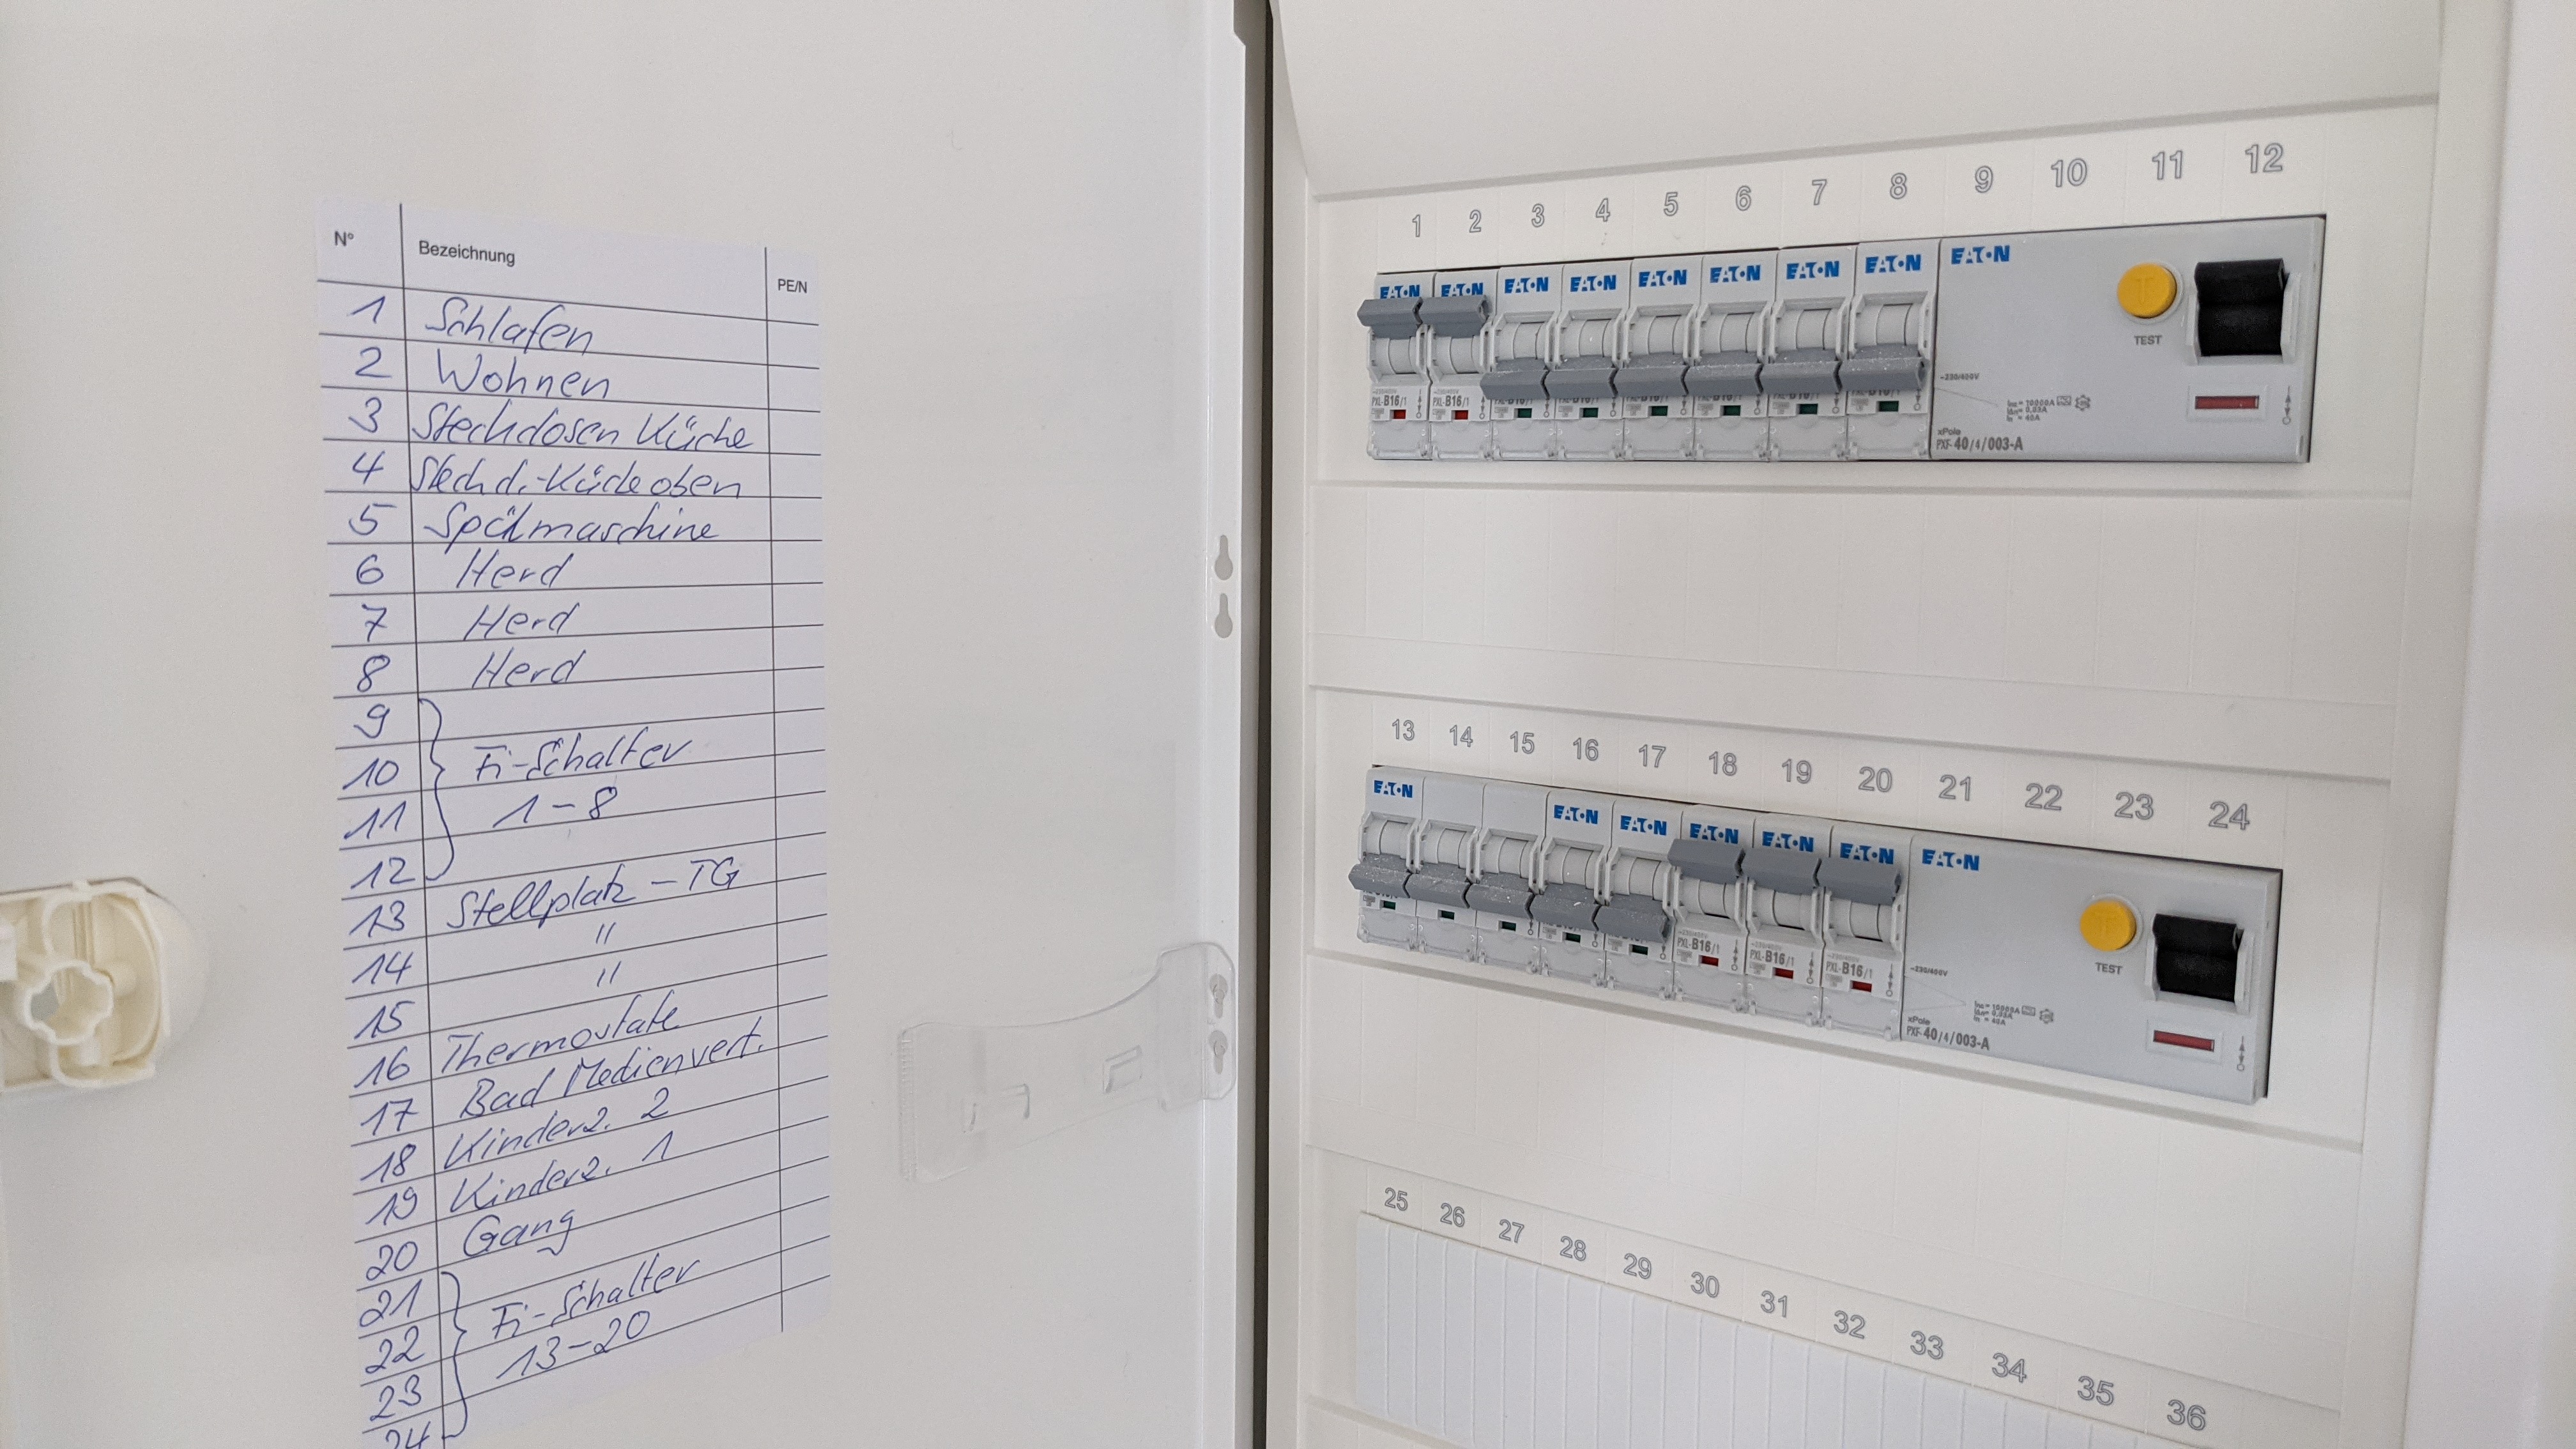 N° Bezeichnung PE/N
1 Schlafen
2 Wohnen
3 Steckdosen Küche
4 Steckd.-Küche oben
5 Spülmaschine
6 Herd
7 Herd
8 Herd
9
10 Fi-Schalter
11 1-8
12
13 Stellplatz - TG
14 "
15 "
16 Thermostate
17 Bad Medienvert.
18 Kinderz. 2
19 Kinderz. 1
20 Gang
21
22 Fi-Schalter
23 13-20
24
1 2 3 4 5 6 7 8 9 10 11 12
EATON EATON EATON EATON EATON EATON EATON EATON EATON
TEST
~230/400V
PXL-B16/1 PXL-B16/1
10000A
0,03A
40A
xPole
PXF-40/4/003-A
13 14 15 16 17 18 19 20 21 22 23 24
EATON EATON EATON EATON EATON EATON EATON
TEST
~230/400V
PXL-B16/1 PXL-B16/1 PXL-B16/1
10000A
0,03A
40A
xPole
PXF-40/4/003-A
25 26 27 28 29 30 31 32 33 34 35 36